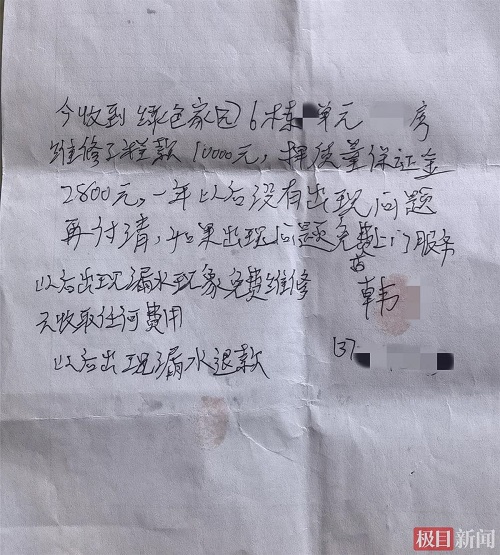 今收到绿色家园6栋 单元 房
维修工程款10000元，押质量保证金
2800元，一年以后没有出现问题
再付清，如果出现问题免费上门服务
以后出现漏水现象免费维修
不收取任何费用
韩
137
以后出现漏水退款
极目新闻